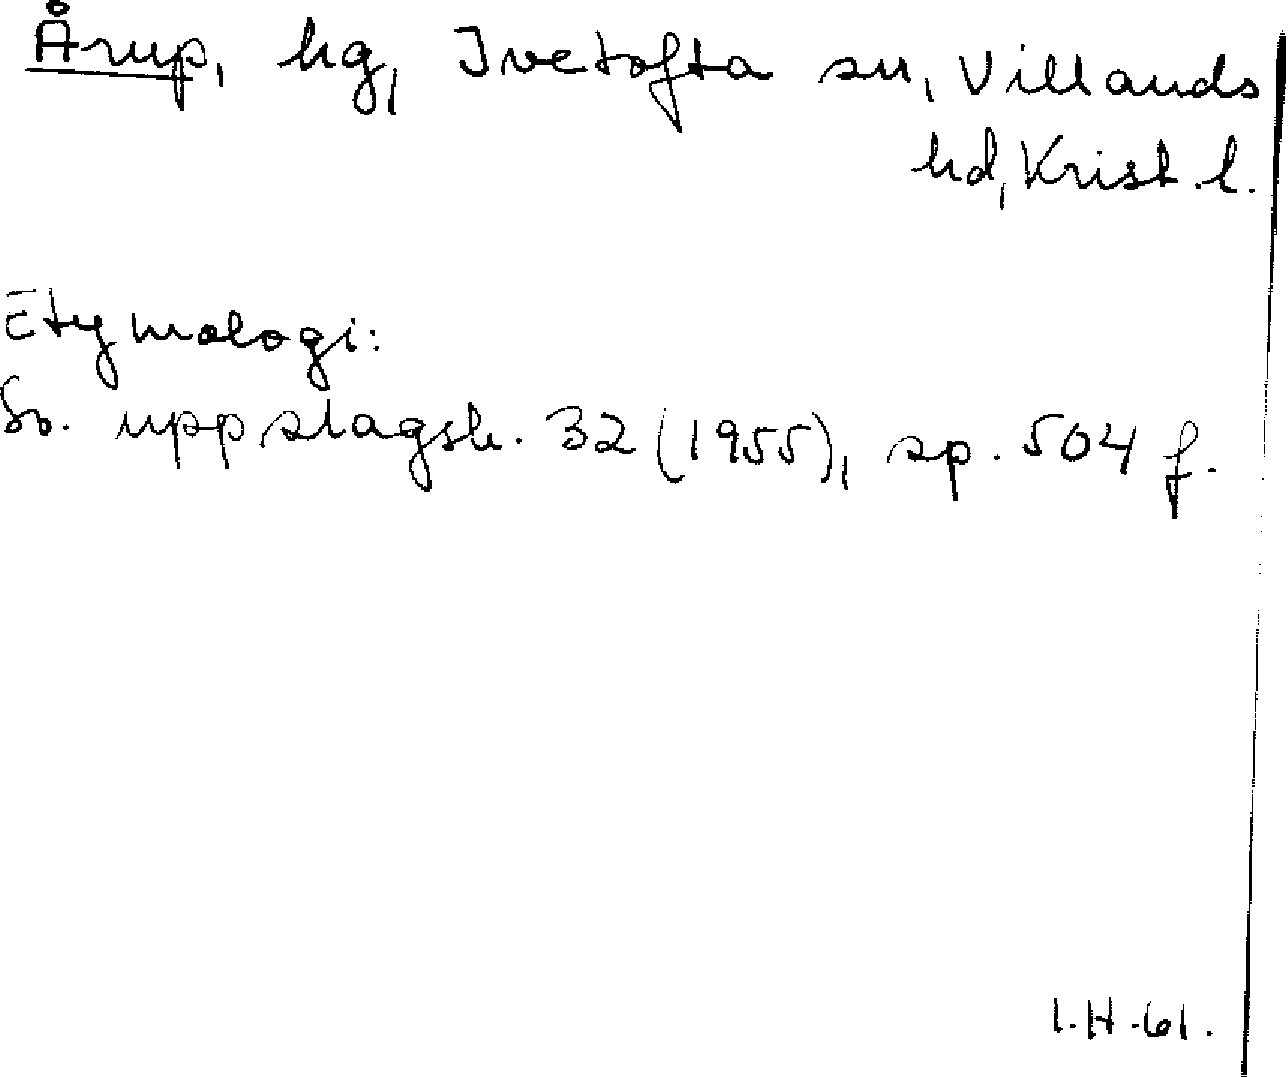 Årup, hg, Ivetofta sn, Villands
hd, Krist. l.
Etymologi:
Sv. uppslagsb. 32 (1955), sp. 504 f.
I.H.-61.